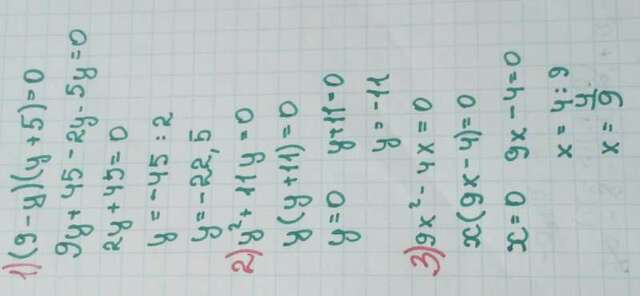 1) (9-y)(y+5)=0
9y+45-2y-5y=0
2y+45=0
y=-45:2
y=-22,5
2) y²+11y=0
y(y+11)=0
y=0 y+11=0
y=-11
3) 9x²-4x=0
x(9x-4)=0
x=0 9x-4=0
x=4:9
x=4/9